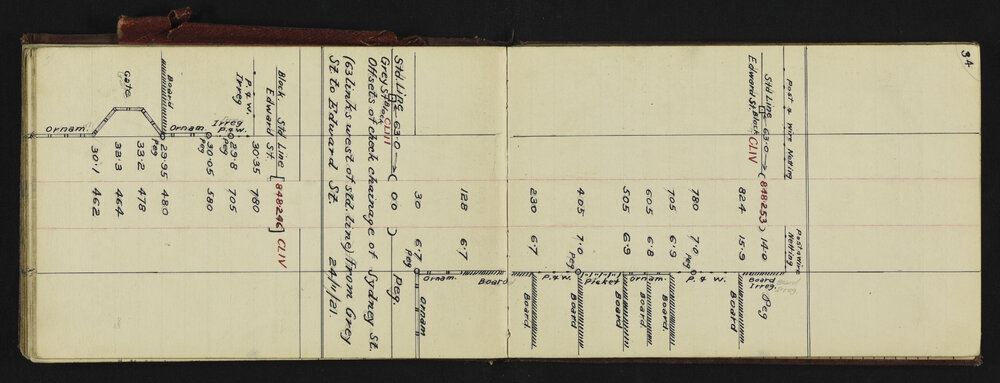 34
Post & Wire Netting
Std Line 63.0 (848.253) 14.0 Peg
Edward St. Block CLIV
Post & Wire Netting
Board Irreg.
824 15.9
Board
780 7.0 Peg
P. & W.
705 6.9
Board.
605 6.8
Ornam.
505 6.9
Board.
Picket
405 7.0 Peg
Board.
P. & W.
230 6.7
Board.
Board
128 6.7
Ornam.
30 6.7 Peg
Ornam
Std Line 63.0 (00) Peg.
Grey St Block CLIII
Offsets of check chainage of Sydney St.
(63 links west of std. line) from Grey
St to Edward St. 24/11/21.
Block Std Line [848.246] CLIV
Edward St.
P. & W.
Irreg
30.35 780
Irreg
P. & W.
Peg 29.8 705
Peg 30.05 580
Ornam.
Board
Peg 29.95 480
33.2 478
Gate
33.3 464
30.1 462
Ornam.